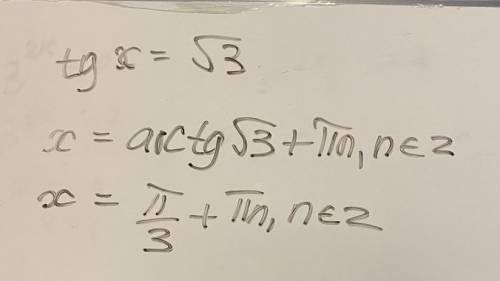 tg x = √3
x = arctg √3 + πn, n ∈ z
x = π/3 + πn, n ∈ z